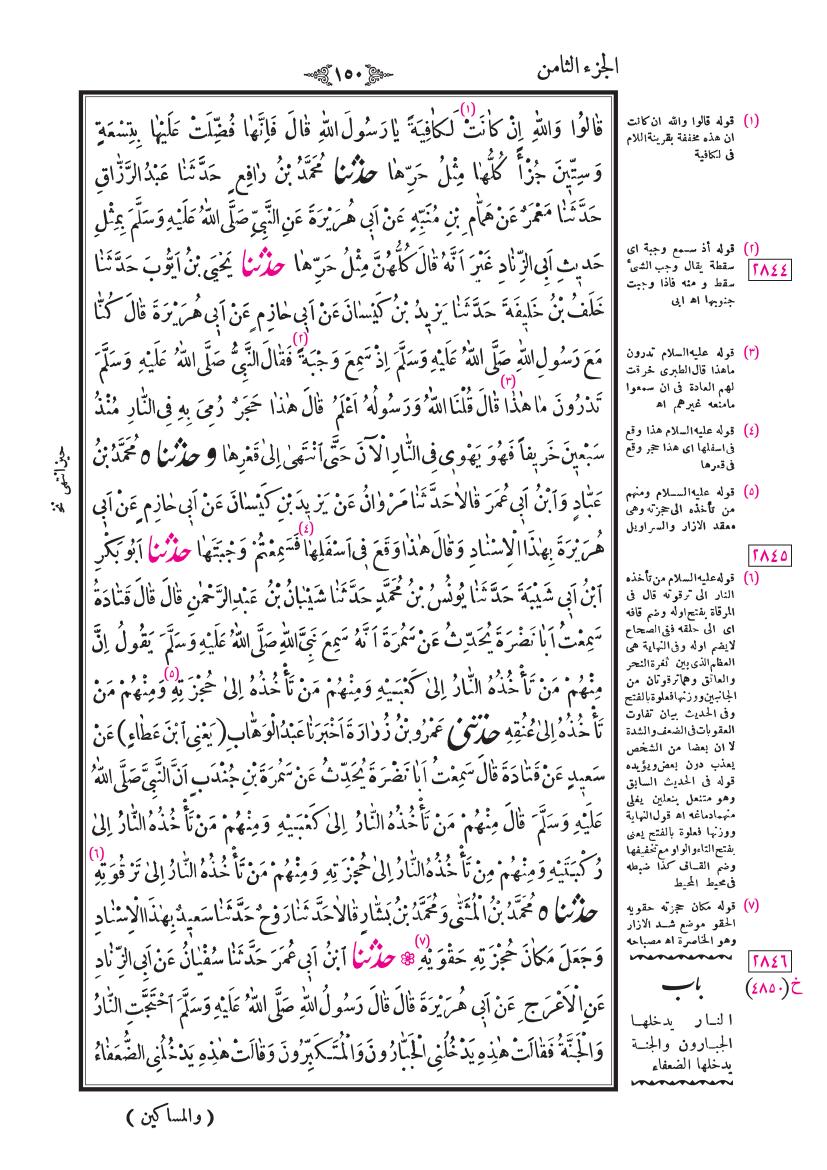 الجزء الثامن
١٥٠
قَالُوا وَاللهِ إِنْ كَانَتْ(١) لَكَافِيَةً يَا رَسُولَ اللهِ قَالَ فَإِنَّهَا فُضِّلَتْ عَلَيْهَا بِتِسْعَةٍ
وَسِتِّينَ جُزْأً كُلُّهَا مِثْلُ حَرِّهَا حدثنا مُحَمَّدُ بْنُ رَافِعٍ حَدَّثَنَا عَبْدُ الرَّزَّاقِ
حَدَّثَنَا مَعْمَرٌ عَنْ هَمَّامِ بْنِ مُنَبِّهٍ عَنْ أَبِي هُرَيْرَةَ عَنِ النَّبِيِّ صَلَّى اللهُ عَلَيْهِ وَسَلَّمَ بِمِثْلِ
حَدِيثِ أَبِي الزِّنَادِ غَيْرَ أَنَّهُ قَالَ كُلُّهُنَّ مِثْلُ حَرِّهَا حدثنا يَحْيَى بْنُ أَيُّوبَ حَدَّثَنَا
خَلَفُ بْنُ خَلِيفَةَ حَدَّثَنَا يَزِيدُ بْنُ كَيْسَانَ عَنْ أَبِي حَازِمٍ عَنْ أَبِي هُرَيْرَةَ قَالَ كُنَّا
مَعَ رَسُولِ اللهِ صَلَّى اللهُ عَلَيْهِ وَسَلَّمَ إِذْ سَمِعَ وَجْبَةً(٢) فَقَالَ النَّبِيُّ صَلَّى اللهُ عَلَيْهِ وَسَلَّمَ
تَدْرُونَ مَا هٰذَا(٣) قَالَ قُلْنَا اللهُ وَرَسُولُهُ أَعْلَمُ قَالَ هٰذَا حَجَرٌ رُمِيَ بِهِ فِي النَّارِ مُنْذُ
سَبْعِينَ خَرِيفاً فَهُوَ يَهْوِي فِي النَّارِ الْآنَ حَتَّى انْتَهَى إِلَى قَعْرِهَا وحدثنا ٥ مُحَمَّدُ بْنُ
عَبَّادٍ وَابْنُ أَبِي عُمَرَ قَالَا حَدَّثَنَا مَرْوَانُ عَنْ يَزِيدَ بْنِ كَيْسَانَ عَنْ أَبِي حَازِمٍ عَنْ أَبِي
هُرَيْرَةَ بِهٰذَا الْإِسْنَادِ وَقَالَ هٰذَا وَقَعَ فِي أَسْفَلِهَا(٤) فَسَمِعْتُمْ وَجْبَتَهَا حدثنا أَبُو بَكْرِ
ابْنُ أَبِي شَيْبَةَ حَدَّثَنَا يُونُسُ بْنُ مُحَمَّدٍ حَدَّثَنَا شَيْبَانُ بْنُ عَبْدِ الرَّحْمٰنِ قَالَ قَالَ قَتَادَةُ
سَمِعْتُ أَبَا نَضْرَةَ يُحَدِّثُ عَنْ سَمُرَةَ أَنَّهُ سَمِعَ نَبِيَّ اللهِ صَلَّى اللهُ عَلَيْهِ وَسَلَّمَ يَقُولُ إِنَّ
مِنْهُمْ مَنْ تَأْخُذُهُ النَّارُ إِلَى كَعْبَيْهِ وَمِنْهُمْ مَنْ تَأْخُذُهُ إِلَى حُجْزَتِهِ(٥) وَمِنْهُمْ مَنْ
تَأْخُذُهُ إِلَى عُنُقِهِ حدثني عَمْرُو بْنُ زُرَارَةَ أَخْبَرَنَا عَبْدُ الْوَهَّابِ (يَعْنِي ابْنَ عَطَاءٍ) عَنْ
سَعِيدٍ عَنْ قَتَادَةَ قَالَ سَمِعْتُ أَبَا نَضْرَةَ يُحَدِّثُ عَنْ سَمُرَةَ بْنِ جُنْدَبٍ أَنَّ النَّبِيَّ صَلَّى اللهُ
عَلَيْهِ وَسَلَّمَ قَالَ مِنْهُمْ مَنْ تَأْخُذُهُ النَّارُ إِلَى كَعْبَيْهِ وَمِنْهُمْ مَنْ تَأْخُذُهُ النَّارُ إِلَى
رُكْبَتَيْهِ وَمِنْهُمْ مَنْ تَأْخُذُهُ النَّارُ إِلَى حُجْزَتِهِ وَمِنْهُمْ مَنْ تَأْخُذُهُ النَّارُ إِلَى تَرْقُوَتِهِ(٦)
حدثنا ٥ مُحَمَّدُ بْنُ الْمُثَنَّى وَمُحَمَّدُ بْنُ بَشَّارٍ قَالَا حَدَّثَنَا رَوْحٌ حَدَّثَنَا سَعِيدٌ بِهٰذَا الْإِسْنَادِ
وَجَعَلَ مَكَانَ حُجْزَتِهِ حَقْوَيْهِ(٧) حدثنا ابْنُ أَبِي عُمَرَ حَدَّثَنَا سُفْيَانُ عَنْ أَبِي الزِّنَادِ
عَنِ الْأَعْرَجِ عَنْ أَبِي هُرَيْرَةَ قَالَ قَالَ رَسُولُ اللهِ صَلَّى اللهُ عَلَيْهِ وَسَلَّمَ احْتَجَّتِ النَّارُ
وَالْجَنَّةُ فَقَالَتْ هٰذِهِ يَدْخُلُنِي الْجَبَّارُونَ وَالْمُتَكَبِّرُونَ وَقَالَتْ هٰذِهِ يَدْخُلُنِي الضُّعَفَاءُ
(والمساكين)
حين انتهى نخ
(١) قوله قالوا والله ان كانت
ان هذه مخففة بقرينة اللام
فى لكافية
(٢) قوله أذ سمع وجبة اى
سقطة يقال وجب الشئ
سقط و منه فاذا وجبت
جنوبها اه ابى
٢٨٤٤
(٣) قوله عليه السلام تدرون
ماهذا قال الطبرى خرقت
لهم العادة فى ان سمعوا
مامنعه غيرهم اه
(٤) قوله عليه السلام هذا وقع
فى اسفلها اى هذا حجر وقع
فى قعرها
(٥) قوله عليه السلام ومنهم
من تأخذه الى حجزته وهى
معقد الازار والسراويل
٢٨٤٥
(٦) قوله عليه السلام من تأخذه
النار الى ترقوته قال فى
المرقاة بفتح اوله وضم قافه
اى الى حلقه ففى الصحاح
لايضم اوله وفى النهاية هى
العظم الذى بين ثغرة النحر
والعاتق وهما ترقوتان من
الجانبين ووزنها فعلوة بالفتح
وفى الحديث بيان تفاوت
العقوبات فى الضعف والشدة
لا ان بعضا من الشخص
يعذب دون بعض ويؤيده
قوله فى الحديث السابق
وهو متنعل بنعلين يغلى
منهما دماغه اه قول النهاية
ووزنها فعلوة بالفتح يعنى
بفتح التاء والواو مع تخفيفها
وضم القاف كذا ضبطه
فى محيط المحيط
(٧) قوله مكان حجزته حقويه
الحقو موضع شد الازار
وهو الخاصرة اه مصباحه
٢٨٤٦
خ (٤٨٥٠)
باب
النار يدخلها
الجبارون والجنة
يدخلها الضعفاء